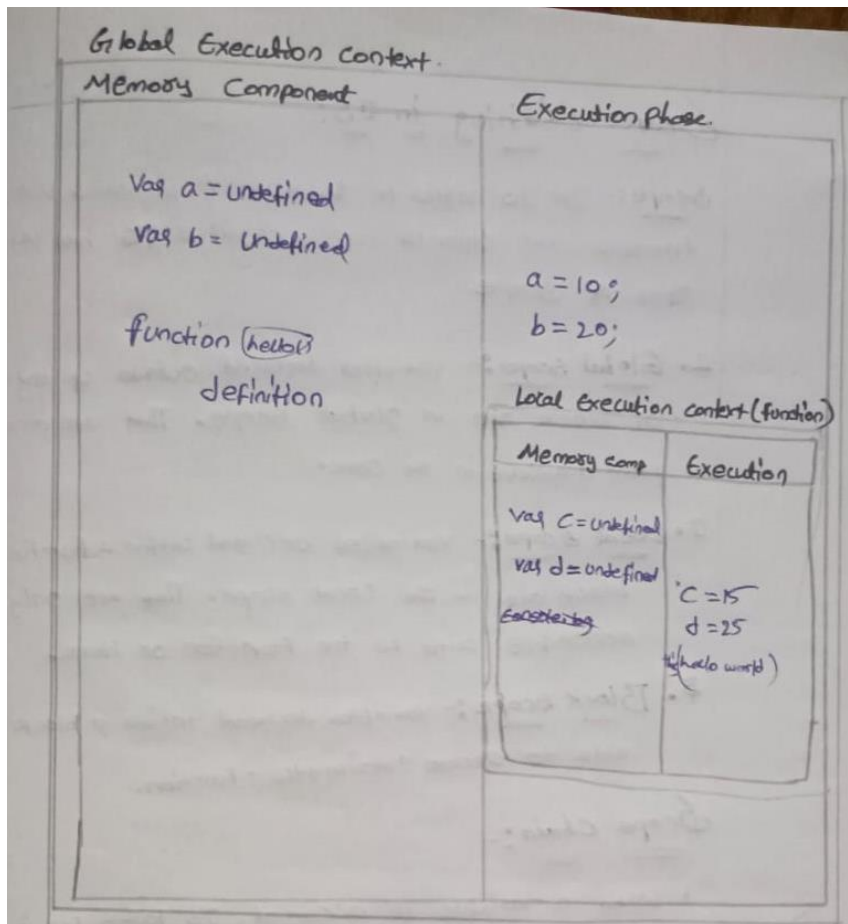 Global Execution context.
Memory Component
Execution phase.
Var a = undefined
Var b = undefined
function hello()
definition
a = 10;
b = 20;
Local execution context (function)
Memory comp
Execution
Var C = undefined
var d = undefined
C = 15
d = 25
(hello world)